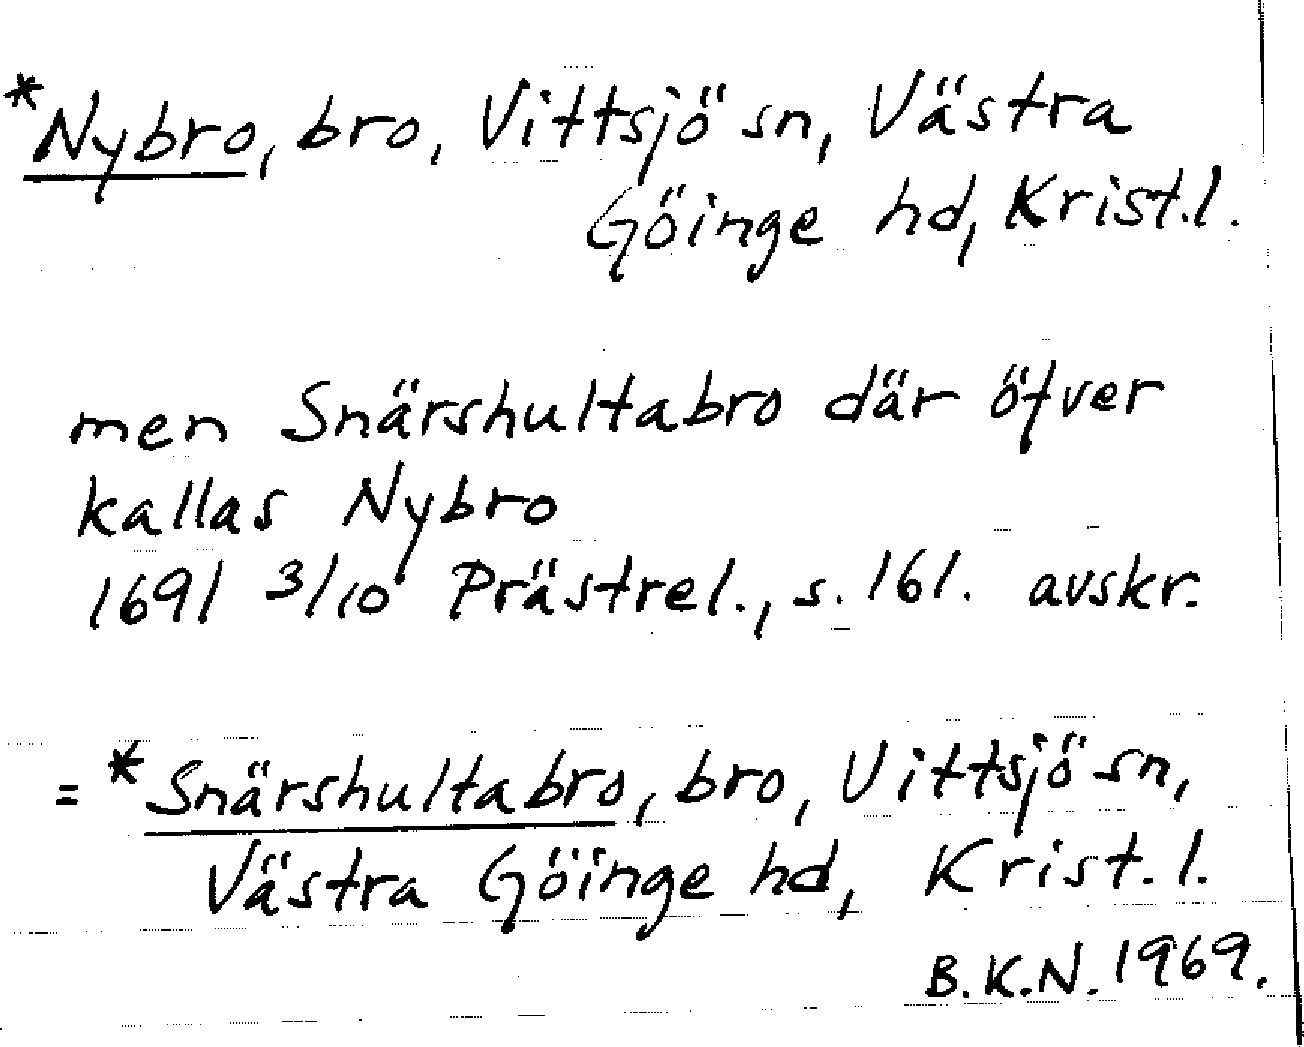 *Nybro, bro, Vittsjö sn, Västra
Göinge hd, Krist.l.
men Snärshultabro där öfver
kallas Nybro
1691 3/10 Prästrel., s. 161. avskr.
= *Snärshultabro, bro, Vittsjö sn,
Västra Göinge hd, Krist.l.
B.K.N. 1969.